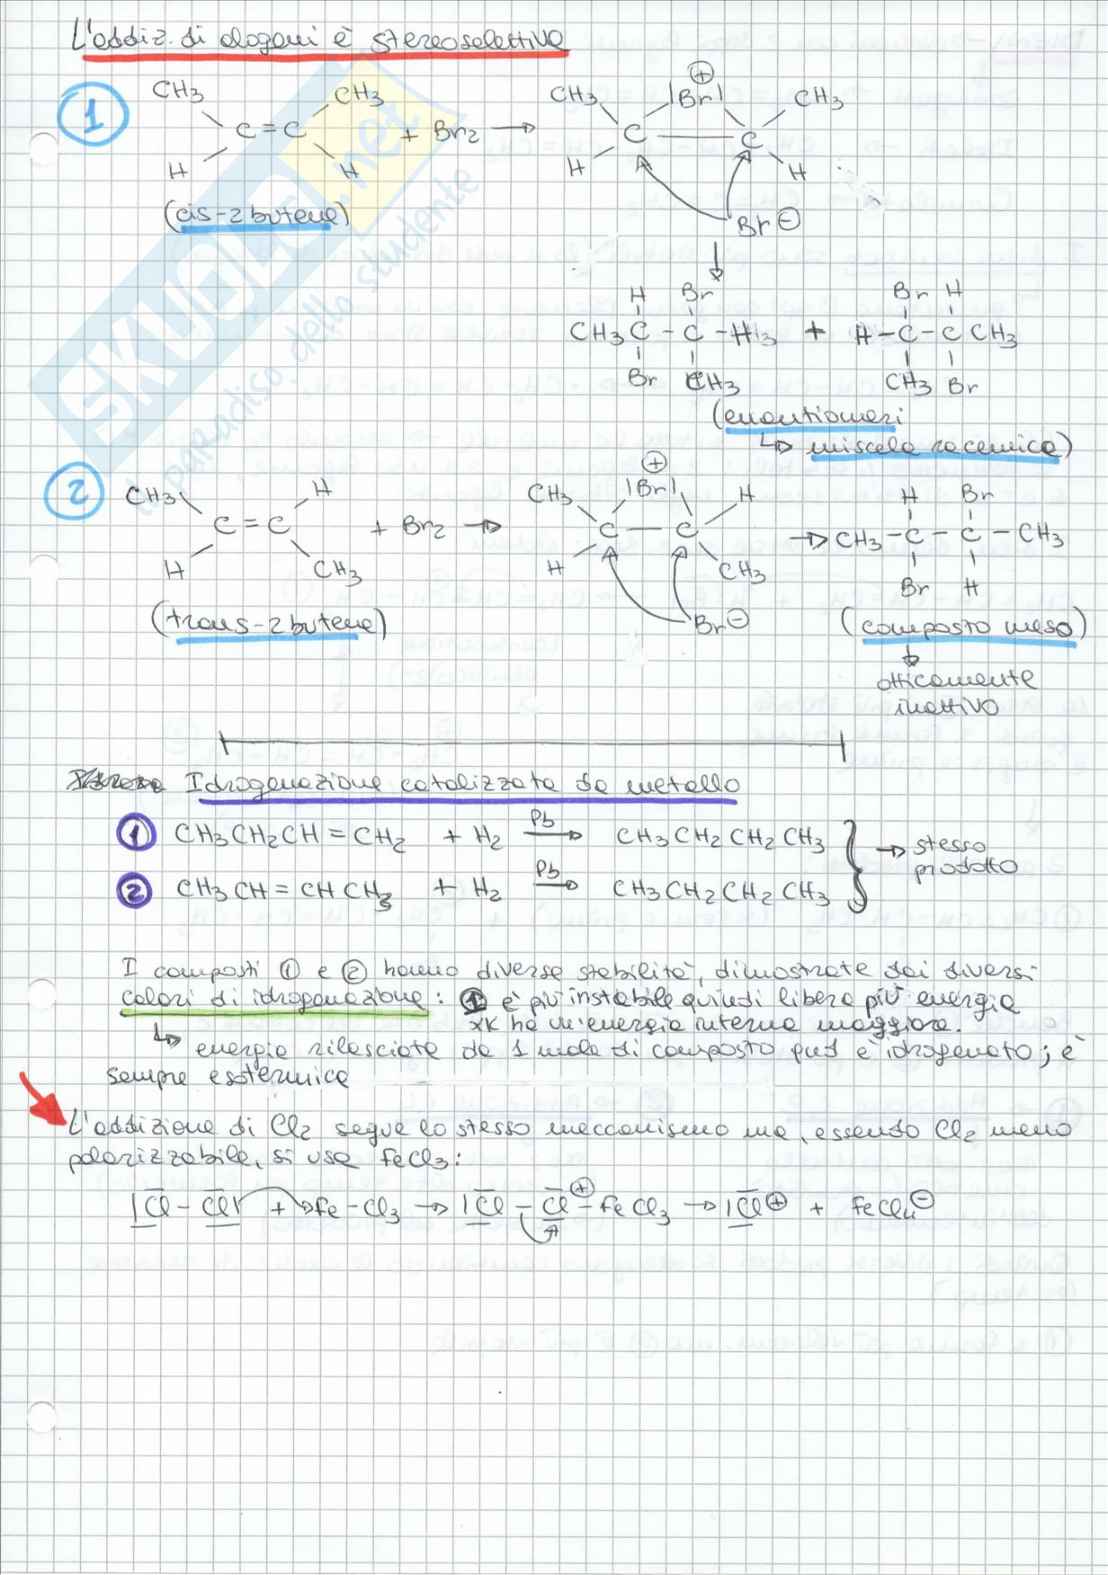 L'addiz. di alogeni è stereoselettiva
1
CH3 CH3
C=C + Br2 →
H H
(cis-2butene)
⊕
CH3 |Br| CH3
C — C
H H
Br⊖
↓
H Br Br H
CH3 C - C - H + H - C - C CH3
Br CH3 CH3 Br
(enantiomeri
↳ miscela racemica)
2
CH3 H
C=C + Br2 →
H CH3
(trans-2butene)
⊕
CH3 |Br| H
C — C
H CH3
Br⊖
H Br
→ CH3 - C - C - CH3
Br H
(composto meso)
↓
otticamente
inattivo
Idrogenazione catalizzata da metallo
① CH3CH2CH=CH2 + H2 Pb→ CH3CH2CH2CH3
② CH3CH=CHCH3 + H2 Pb→ CH3CH2CH2CH3
} → stesso
prodotto
I composti ① e ② hanno diversa stabilità, dimostrate dai diversi
calori di idrogenazione: ① è più instabile quindi libera più energia
xk ha un'energia interna maggiore.
↳ energia rilasciata da 1 mole di composto qnd è idrogenato; è
sempre esotermica
L'addizione di Cl2 segue lo stesso meccanismo ma, essendo Cl2 meno
polarizzabile, si usa FeCl3:
|Cl - Cl| + Fe-Cl3 → |Cl - Cl⊕ - FeCl3 → |Cl⊕ + FeCl4⊖
SKUOLA.net
il paradiso dello studente